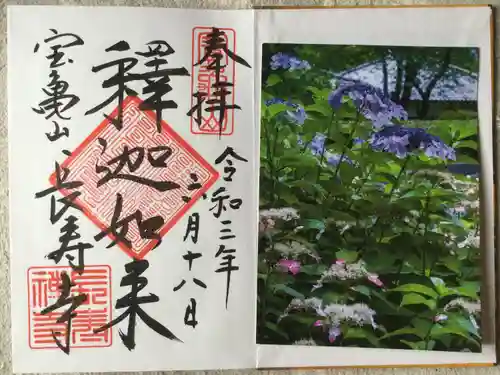 奉拝
令和三年
六月十八日
釋迦如来
宝亀山
長寿寺